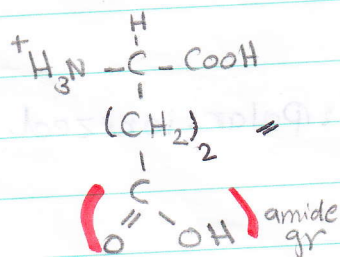 H
+
H3N - C - COOH
(CH2)2 =
C
O OH amide
gr